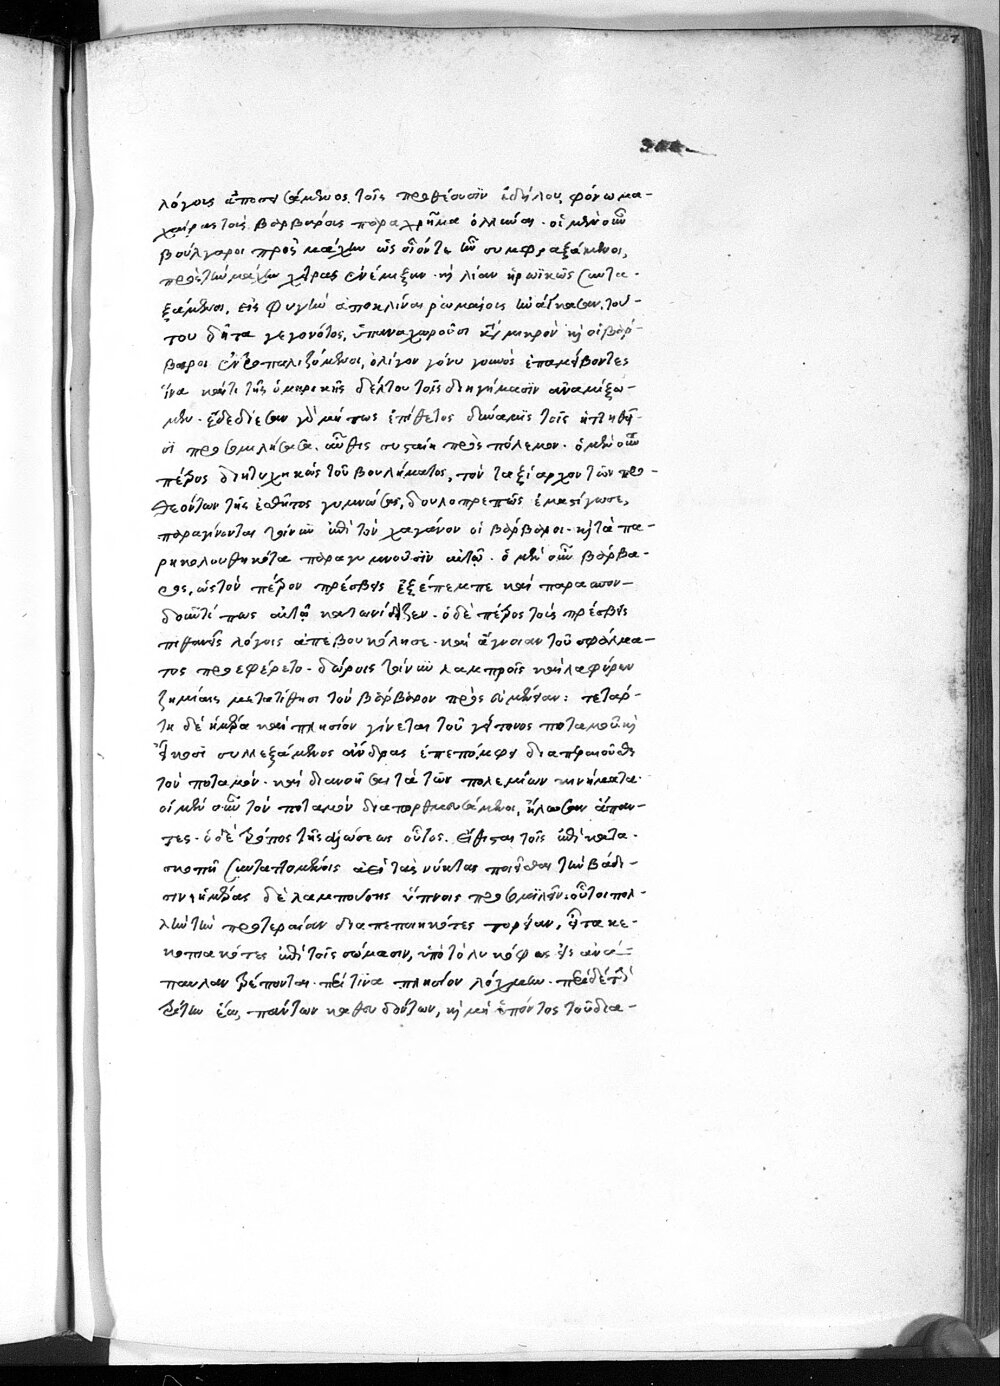 λόγοις ἀποσεισάμενος τοῖς προθέουσιν ἐδήλου, φόνῳ μα-
χαίρας τοὺς βαρβάρους παραχρῆμα ὀλλύναι. οἱ μὲν οὖν
βούλγαροι πρὸς μάχην ὡς οἷόν τε ἦν συμφραξάμενοι,
πρὸς τὴν μάχην χεῖρας ἀνέμιξαν. καὶ λίαν ἡρωϊκῶς συντα-
ξάμενοι, εἰς φυγὴν ἀποκλῖναι ῥωμαίους ἠνάγκασαν. τού-
του δῆτα γεγονότος, ὑπαναχωροῦσι κατὰ μικρὸν καὶ οἱ βάρ-
βαροι ἐντροπαλιζόμενοι, ὀλίγον γόνυ γουνὸς ἐπαμείβοντες
ἵνα καί τι τῆς ὁμηρικῆς δέλτου τοῖς διηγήμασιν ἀναμίξω-
μεν. ἐδεδίεσαν γὰρ μή πως ἐπίθετος δύναμις τοῖς ἡττηθεῖ-
σι προσομιλήσασα, αὖθις συσταίη πρὸς πόλεμον. ὁ μὲν οὖν
πέτρος διητυχηκὼς τοῦ βουλήματος, τὸν ταξίαρχον τῶν προ-
θεόντων τῆς ἐσθῆτος γυμνώσας, δουλοπρεπῶς ἐμαστίγωσε.
παραγίνονται τοίνυν ἐπὶ τὸν χαγάνον οἱ βάρβαροι. καὶ τὰ πα-
ρηκολουθηκότα παραγυμνοῦσιν αὐτῷ. ὁ μὲν οὖν βάρβα-
ρος, ὡς τὸν πέτρον πρέσβεις ἐξέπεμπε καὶ παρασπον-
δοῦντί πως αὐτῷ κατωνείδιζεν. ὁ δὲ πέτρος τοὺς πρέσβεις
πιθανοῖς λόγοις ἀπεβουκόλησε. καὶ ἄγνοιαν τοῦ σφάλμα-
τος προεφέρετο. δώροις τοίνυν λαμπροῖς καὶ λαφύρων
ζημίαις μετατίθησι τὸν βάρβαρον πρὸς εὐμένειαν: τετάρ-
τη δὲ ἡμέρα καὶ πλησίον γίνεται τοῦ γείτονος ποταμοῦ. καὶ
εἴκοσι συλλεξάμενος ἄνδρας ἐπεπόμφει διαπεραιοῦσθαι
τὸν ποταμόν. καὶ διανοῆσαι τὰ τῶν πολεμίων κινήματα.
οἱ μὲν οὖν τὸν ποταμὸν διαπορθμευσάμενοι, ἥλωσαν ἅπαν-
τες. ὁ δὲ τρόπος τῆς ἁλώσεως οὗτος. εἴθισται τοῖς ἐπὶ κατα-
σκοπῆ συνταττομένοις ἀεὶ τὰς νύκτας ποιεῖσθαι τὴν βάδι-
σιν, ἡμέρας δὲ λαμπούσης ὕπνοις προσομιλεῖν. οὗτοι πολ-
λὴν τὴν προτεραίαν διαπεποιηκότες πορείαν, εἶτα κε-
κοπιακότες ἐπὶ τοῖς σώμασιν, ὑπὸ τὸ λυκόφως εἰς ἀνά-
παυλαν τρέπονται. περί τινα πλησίον λόχμην. περὶ δὲ
τρίτην ἕω, πάντων καθευδόντων, καὶ μὴ ἐπόντος τοῦ δια-